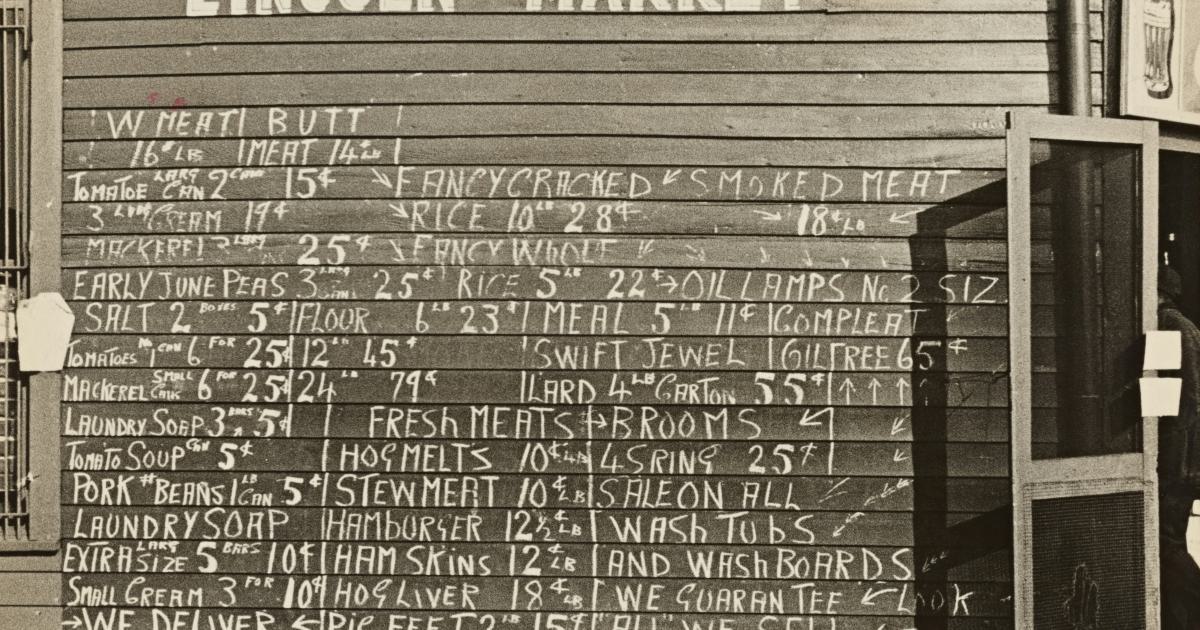 LINCOLN MARKET
W MEAT BUTT
16¢ LB MEAT 14¢ LB
TOMATOE LARG CAN 2 CANS 15¢ FANCY CRACKED SMOKED MEAT
3 LARG CREAM 19¢ RICE 10 LB 28¢ 18¢ LB
MACKEREL 3 LARG 25¢ FANCY WHOLE
EARLY JUNE PEAS 3 LARG CAN 25¢ RICE 5 LB 22¢ → OIL LAMPS No 2 SIZ
SALT 2 BOXES 5¢ FLOUR 6 LB 23¢ MEAL 5 LB 11¢ COMPLEAT
TOMATOES No 1 CAN 6 FOR 25¢ 12 LB 45¢ SWIFT JEWEL GILTREE 65¢
MACKEREL SMALL CANS 6 FOR 25¢ 24 LB 79¢ LARD 4 LB CARTON 55¢ ↑ ↑ ↑
LAUNDRY SOAP 3 BARS 5¢ FRESH MEATS → BROOMS
TOMATO SOUP CAN 5¢ HOG MELTS 10¢ LB 4 SRING 25¢
PORK # BEANS 1 LB CAN 5¢ STEW MEAT 10¢ LB SALE ON ALL
LAUNDRY SOAP HAMBURGER 12½¢ LB WASH TUBS
EXTRA LARG SIZE 5 BARS 10¢ HAM SKINS 12¢ LB AND WASH BOARDS
SMALL CREAM 3 FOR 10¢ HOG LIVER 18¢ LB WE GUARANTEE ← LOOK
→ WE DELIVER ← PIG FEET 2 LB 15¢ "ALL" WE SELL